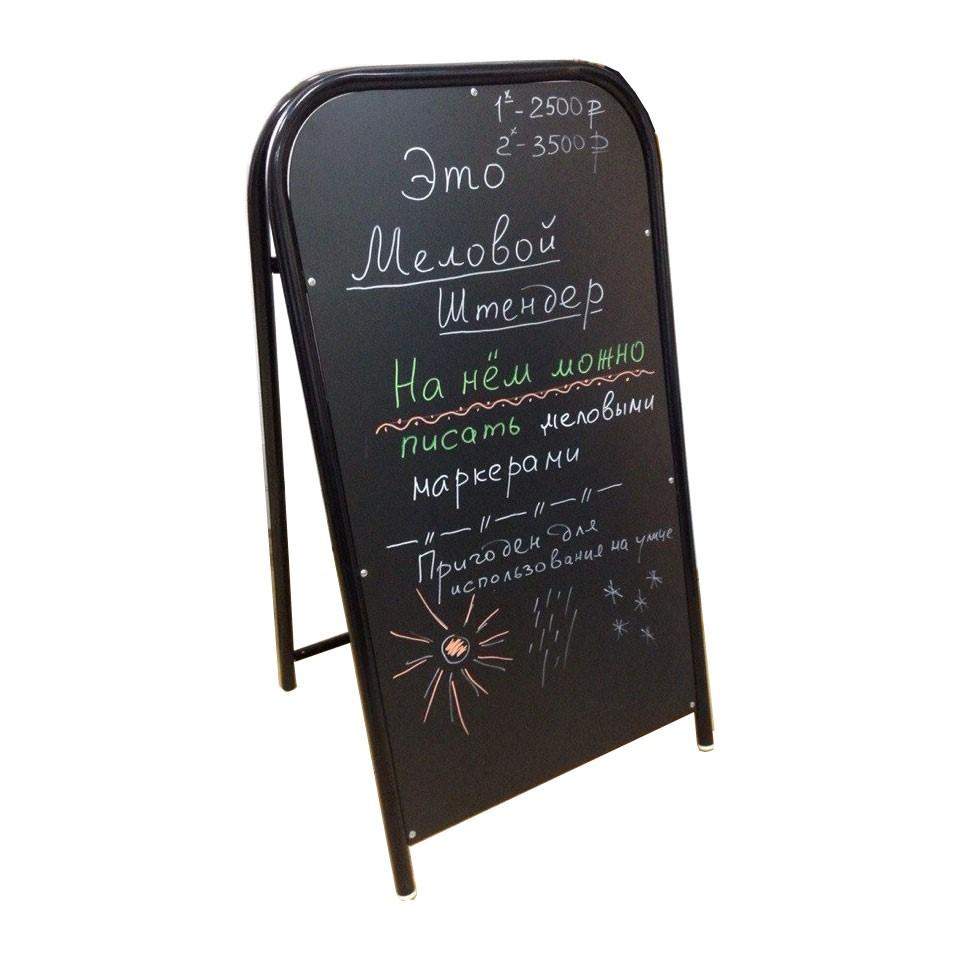 1х - 2500 ₽
2х - 3500 ₽
Это
Меловой
Штендер
На нём можно
писать меловыми
маркерами
— // — // — // — // —
Пригоден для
использования на улице